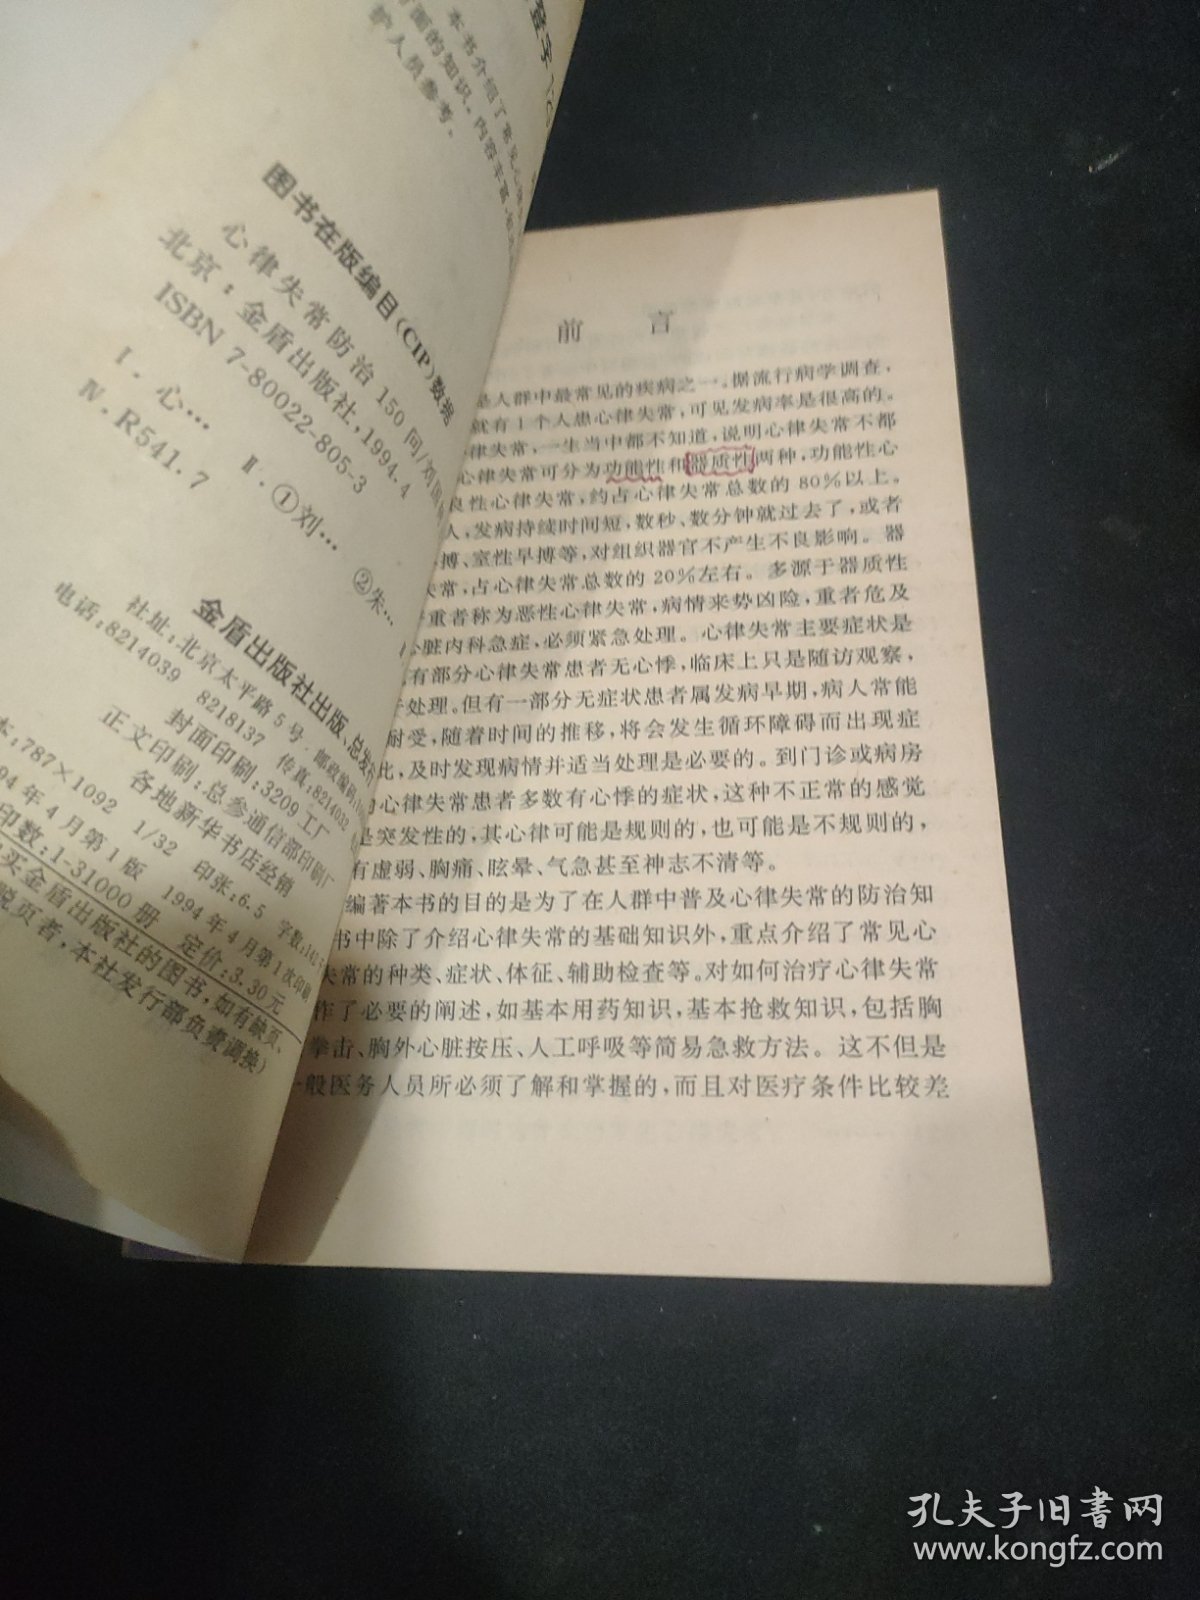 本书介绍了常见心律
方面的知识。内容丰富,
护人员参考。
图书在版编目(CIP)数据
心律失常防治150问/刘国
北京:金盾出版社,1994.4
ISBN 7-80022-805-3
Ⅰ.心… Ⅱ.①刘… ②朱…
Ⅳ.R541.7
金盾出版社出版、总发行
社址:北京太平路5号·邮政编码
电话:8214039 8218137 传真:8214032
封面印刷:3209工厂
正文印刷:总参通信部印刷厂
各地新华书店经销
本:787×1092 1/32 印张:6.5 字数:
94年4月第1版 1994年4月第1次印刷
印数:1-31000册 定价:3.30元
买金盾出版社的图书,如有缺页、
脱页者,本社发行部负责调换)
前言
是人群中最常见的疾病之一。据流行病学调查,
就有1个人患心律失常,可见发病率是很高的。
律失常,一生当中都不知道,说明心律失常不都
心律失常可分为功能性和器质性两种,功能性心
良性心律失常,约占心律失常总数的80%以上。
人,发病持续时间短,数秒、数分钟就过去了,或者
搏、室性早搏等,对组织器官不产生不良影响。器
失常,占心律失常总数的20%左右。多源于器质性
重者称为恶性心律失常,病情来势凶险,重者危及
心脏内科急症,必须紧急处理。心律失常主要症状是
有部分心律失常患者无心悸,临床上只是随访观察,
处理。但有一部分无症状患者属发病早期,病人常能
耐受,随着时间的推移,将会发生循环障碍而出现症
此,及时发现病情并适当处理是必要的。到门诊或病房
的心律失常患者多数有心悸的症状,这种不正常的感觉
是突发性的,其心律可能是规则的,也可能是不规则的,
有虚弱、胸痛、眩晕、气急甚至神志不清等。
编著本书的目的是为了在人群中普及心律失常的防治知
书中除了介绍心律失常的基础知识外,重点介绍了常见心
失常的种类、症状、体征、辅助检查等。对如何治疗心律失常
作了必要的阐述,如基本用药知识,基本抢救知识,包括胸
拳击、胸外心脏按压、人工呼吸等简易急救方法。这不但是
一般医务人员所必须了解和掌握的,而且对医疗条件比较差
孔夫子旧书网
www.kongfz.com